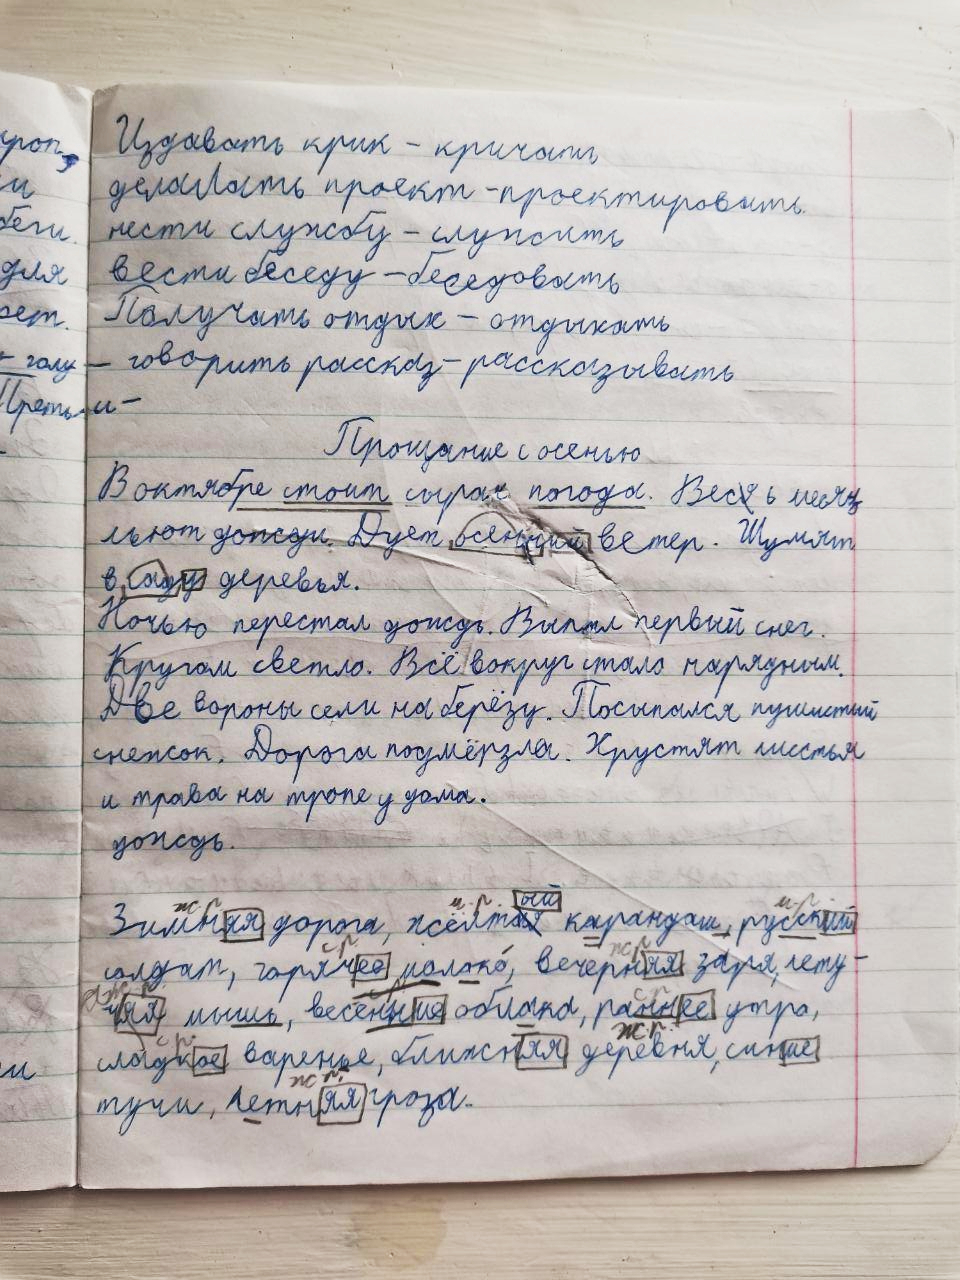 Издавать крик – кричать
делать проект – проектировать
нести службу – служить
вести беседу – беседовать
Получать отдых – отдыхать
говорить рассказ – рассказывать
Прощание с осенью
В октябре стоит сырая погода. Весь месяц
льют дожди. Дует осенний ветер. Шумят
в саду деревья.
Ночью перестал дождь. Выпал первый снег.
Кругом светло. Всё вокруг стало нарядным.
Две вороны сели на берёзу. Посыпался пушистый
снежок. Дорога подмёрзла. Хрустят листья
и трава на тропе у дома.
дождь.
ж.р. м.р. ый м.р.
Зимняя дорога, жёлтый карандаш, русский
с.р. ж.р.
солдат, горячее молоко, вечерняя заря, лету-
ж.р. с.р.
чая мышь, весенние облака, раннее утро,
с.р. ж.р.
сладкое варенье, ближняя деревня, синие
ж.р.
тучи, летняя гроза.
для